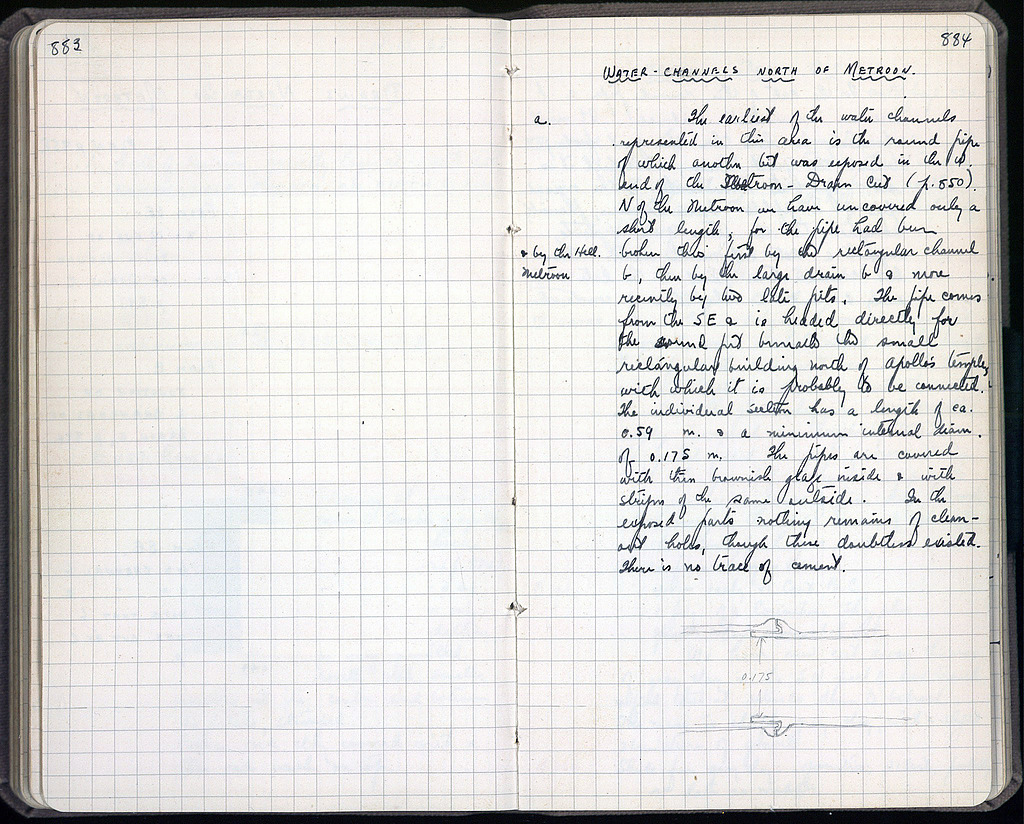 883
884
WATER-CHANNELS NORTH OF METROON.
a.
The earliest of the water channels
represented in this area is the round pipe
of which another bit was exposed in the W.
end of the Metroon-Drain Cut (p. 850).
N of the Metroon we have uncovered only a
short length, for the pipe had been
& by the Hell.
Metroon
broken thru first by the rectangular channel
b, then by the large drain & more
recently by two late pits. The pipe comes
from the SE & is headed directly for
the round pit beneath the small
rectangular building north of Apollo's temple,
with which it is probably to be connected.
The individual section has a length of ca.
0.59 m. & a minimum internal diam.
of 0.175 m. The pipes are covered
with thin brownish glaze inside & with
strips of the same outside. In the
exposed parts nothing remains of clean-
out holes, though these doubtless existed.
There is no trace of cement.
0.175